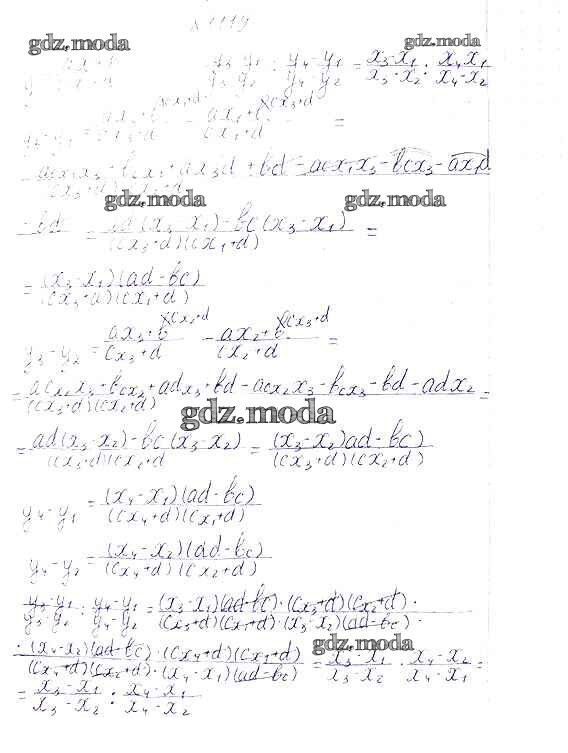 N 1119
gdz.moda gdz.moda
(y₃-y₁)/(y₃-y₂) : (y₄-y₁)/(y₄-y₂) = (x₃-x₁)/(x₃-x₂) : (x₄-x₁)/(x₄-x₂)
y₃-y₁ = (ax₃+b)/(cx₃+d) - (ax₁+b)/(cx₁+d) =
acx₁x₃ + bcx₁ + ax₃d + bd - acx₁x₃ - bcx₃ - ax₁d
gdz.moda gdz.moda
-bd = (ad(x₃-x₁)-bc(x₃-x₁))/((cx₃+d)(cx₁+d)) =
= ((x₃-x₁)(ad-bc))/((cx₃+d)(cx₁+d))
y₃-y₂ = (ax₃+b)/(cx₃+d) - (ax₂+b)/(cx₂+d) =
= (acx₂x₃+bcx₂+adx₃+bd-acx₂x₃-bcx₃-bd-adx₂)/((cx₃+d)(cx₂+d)) =
gdz.moda
= (ad(x₃-x₂)-bc(x₃-x₂))/((cx₃+d)(cx₂+d) = ((x₃-x₂)ad-bc)/((cx₃+d)(cx₂+d))
y₄-y₁ = ((x₄-x₁)(ad-bc))/((cx₄+d)(cx₁+d))
y₄-y₂ = ((x₄-x₂)(ad-bc))/((cx₄+d)(cx₂+d))
(y₃-y₁)/(y₃-y₂) : (y₄-y₁)/(y₄-y₂) = ((x₃-x₁)(ad-bc)·(cx₃+d)(cx₂+d))/((cx₃+d)(cx₁+d)·(x₃-x₂)(ad-bc)) ·
gdz.moda
· ((x₄-x₂)(ad-bc)·(cx₄+d)(cx₁+d))/((cx₄+d)(cx₂+d)·(x₄-x₁)(ad-bc)) = (x₃-x₁)/(x₃-x₂) · (x₄-x₂)/(x₄-x₁) =
= (x₃-x₁)/(x₃-x₂) : (x₄-x₁)/(x₄-x₂)